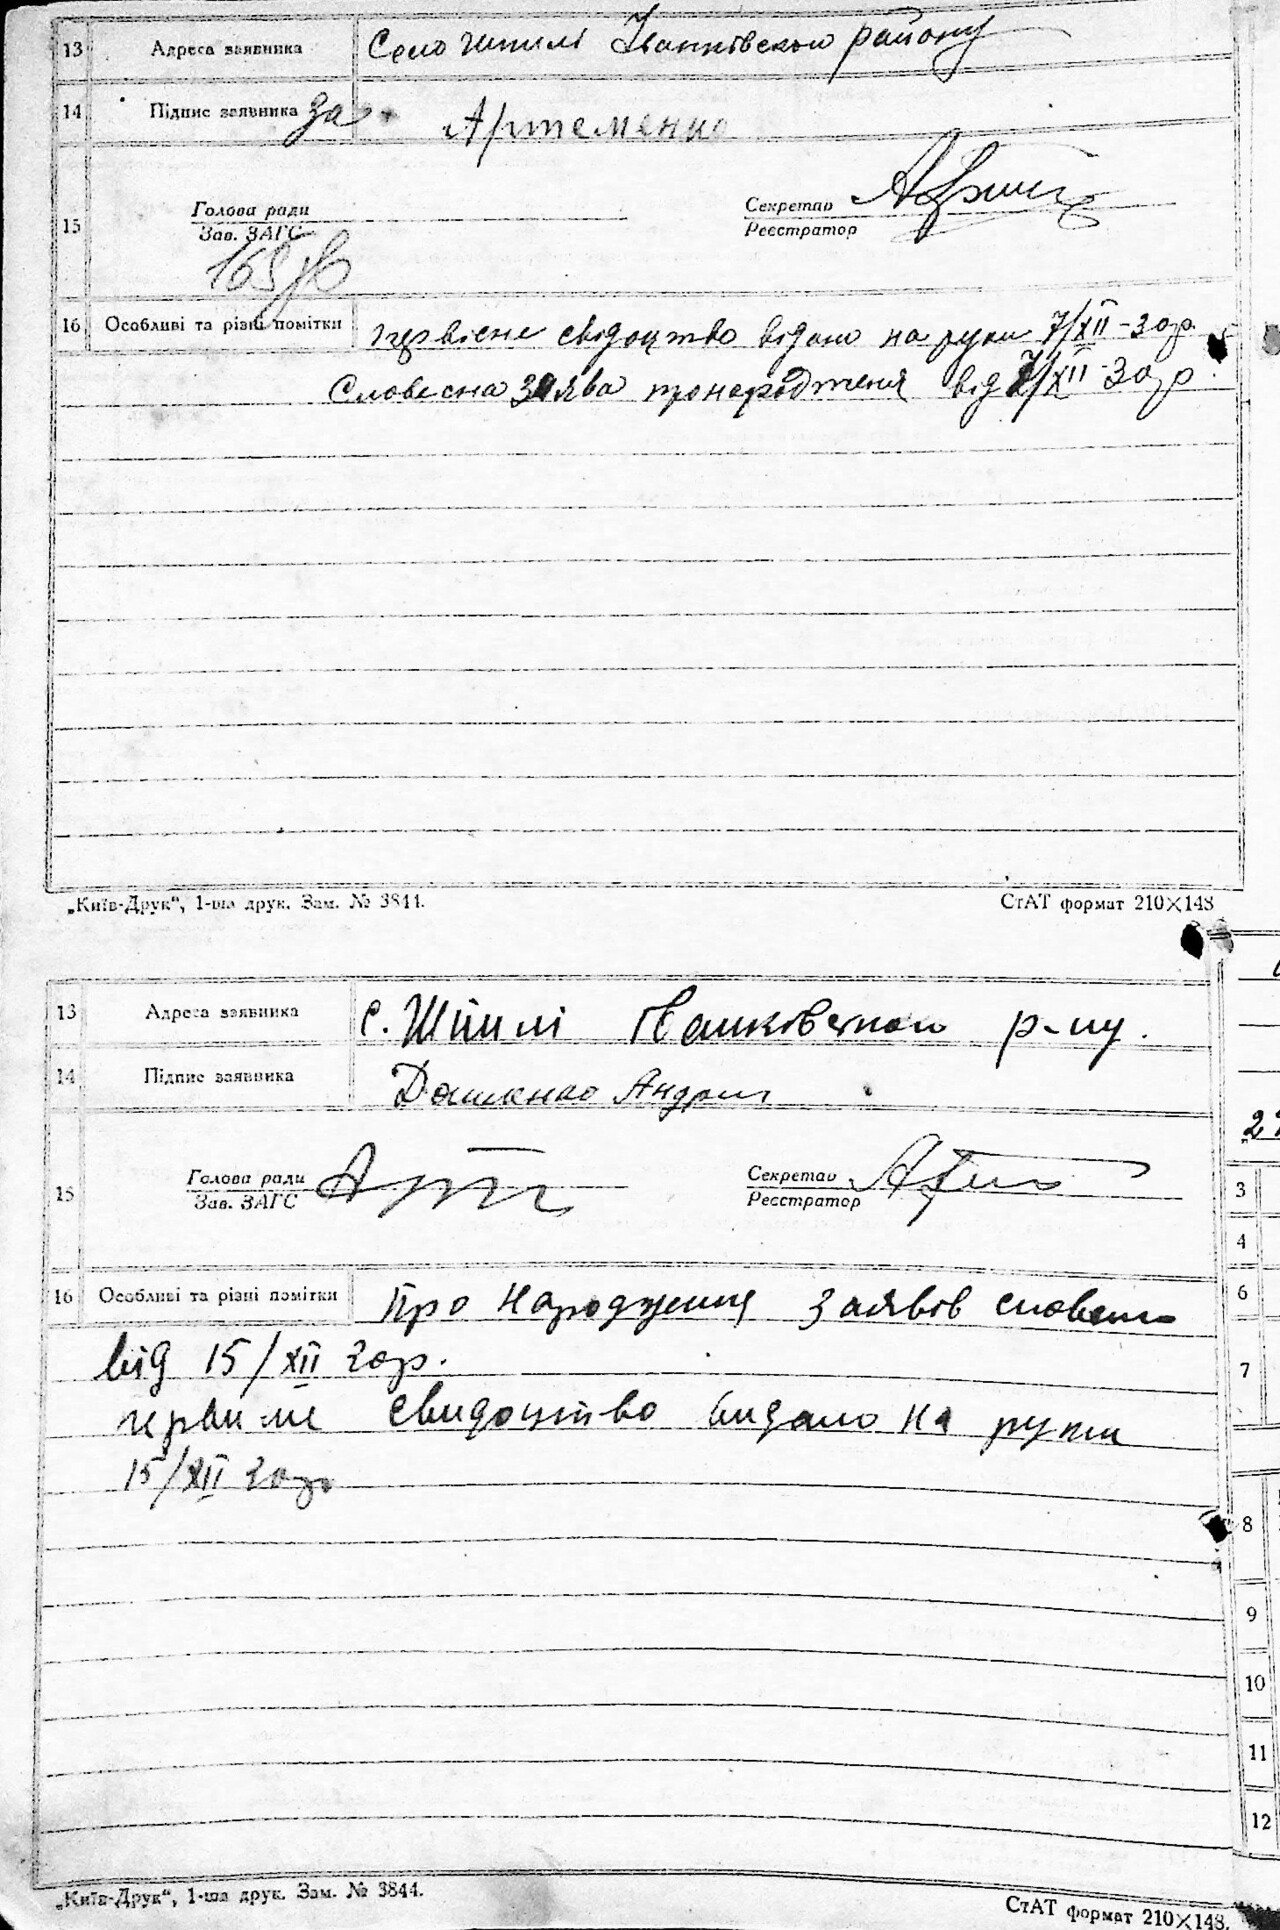 13 Адреса заявника Село шпилі Іванківского району
14 Підпис заявника за Артеменко
15 Голова ради Секретар
Зав. ЗАГС Реєстратор
16 Особливі та різні помітки первісне свідоцтво відано на руки 7/XII-30р.
Словесна заява пронародження від 7/XII-30р.
„Київ-Друк“, 1-ша друк. Зам. № 3844. СтАТ формат 210×148
13 Адреса заявника с. Шпилі Іванковского р-ну.
14 Підпис заявника Дашенко Андрій
15 Голова ради Секретар
Зав. ЗАГС Реєстратор
16 Особливі та різні помітки Про народження заявів словесно
від 15/XII 30р.
свидоцтво видано на руки
15/XII 30р.
3
4
6
7
8
9
10
11
12
„Київ-Друк“, 1-ша друк. Зам. № 3844. СтАТ формат 210×148.